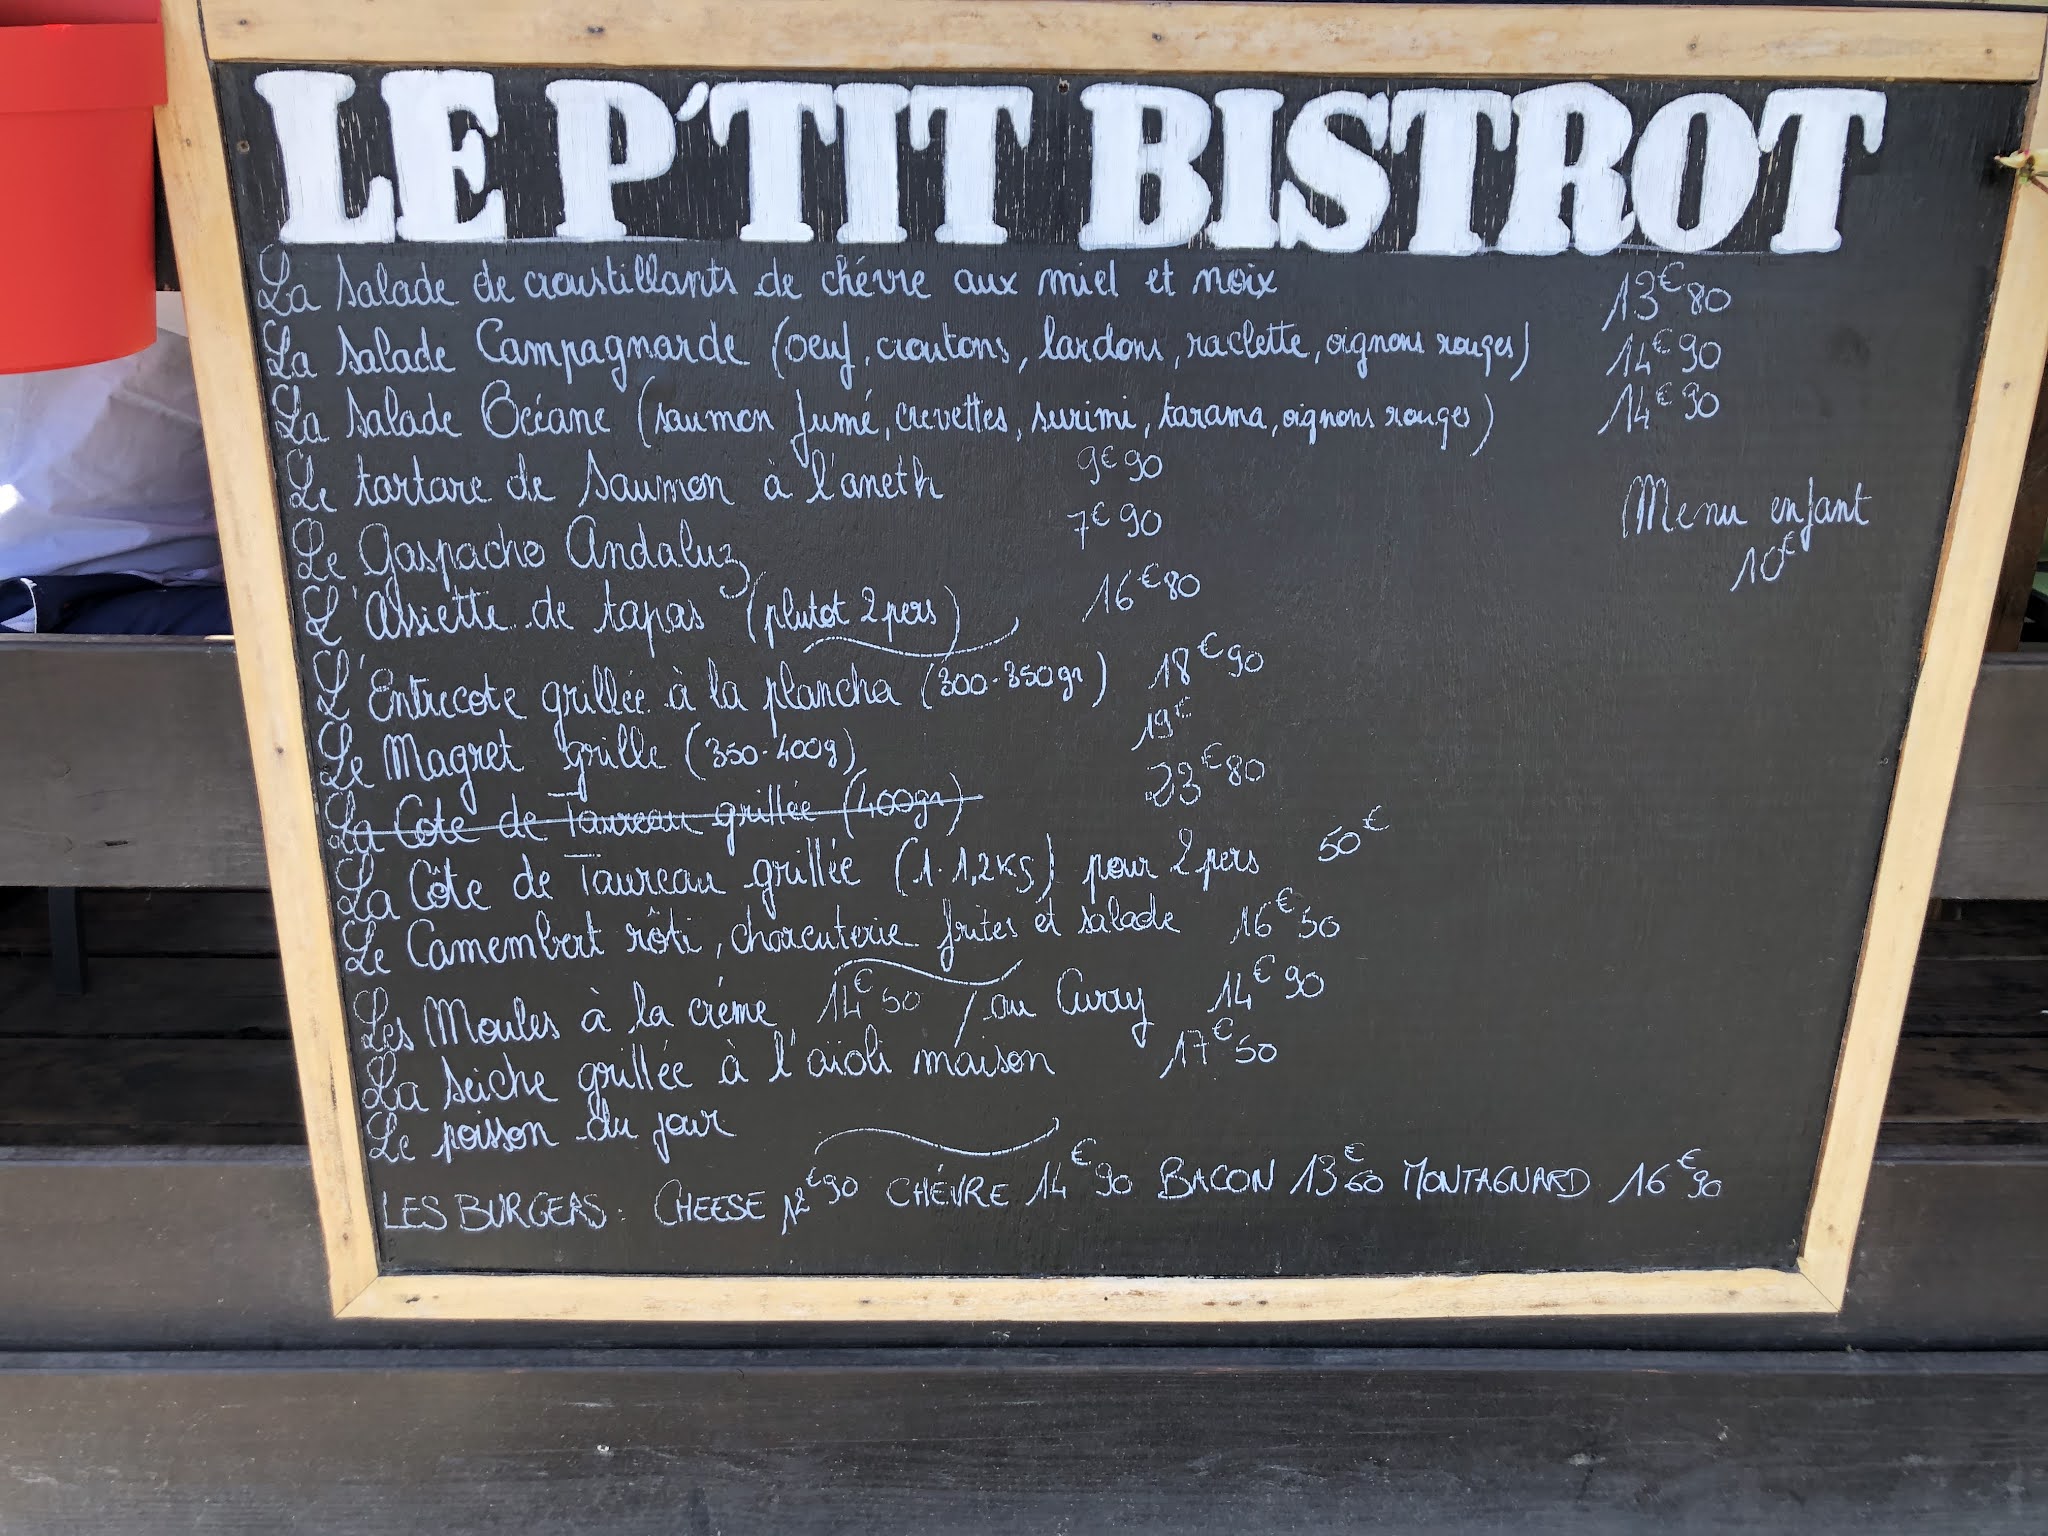 LE P'TIT BISTROT
La salade de croustillants de chévre aux miel et noix 13€80
La salade Campagnarde (oeuf, croutons, lardons, raclette, oignons rouges) 14€90
La salade Océane (saumon fumé, crevettes, surimi, tarama, oignons rouges) 14€90
Le tartare de saumon à l'aneth 9€90
Le Gaspacho Andaluz 7€90
Menu enfant
10€
L'Assiette de tapas (plutot 2 pers) 16€80
L'Entrecote grillée à la plancha (300-350gr) 18€90
Le Magret grillé (350-400g) 19€
La Cote de Taureau grillée (400gr) 23€80
La Côte de Taureau grillée (1-1,2KG) pour 2 pers 50€
Le Camembert rôti, charcuterie frites et salade 16€50
Les Moules à la créme 14€50 / ou Curry 14€90
La seiche grillée à l'aïoli maison 17€50
Le poisson du jour
LES BURGERS: CHEESE 12€90 CHÉVRE 14€90 BACON 13€60 MONTAGNARD 16€90